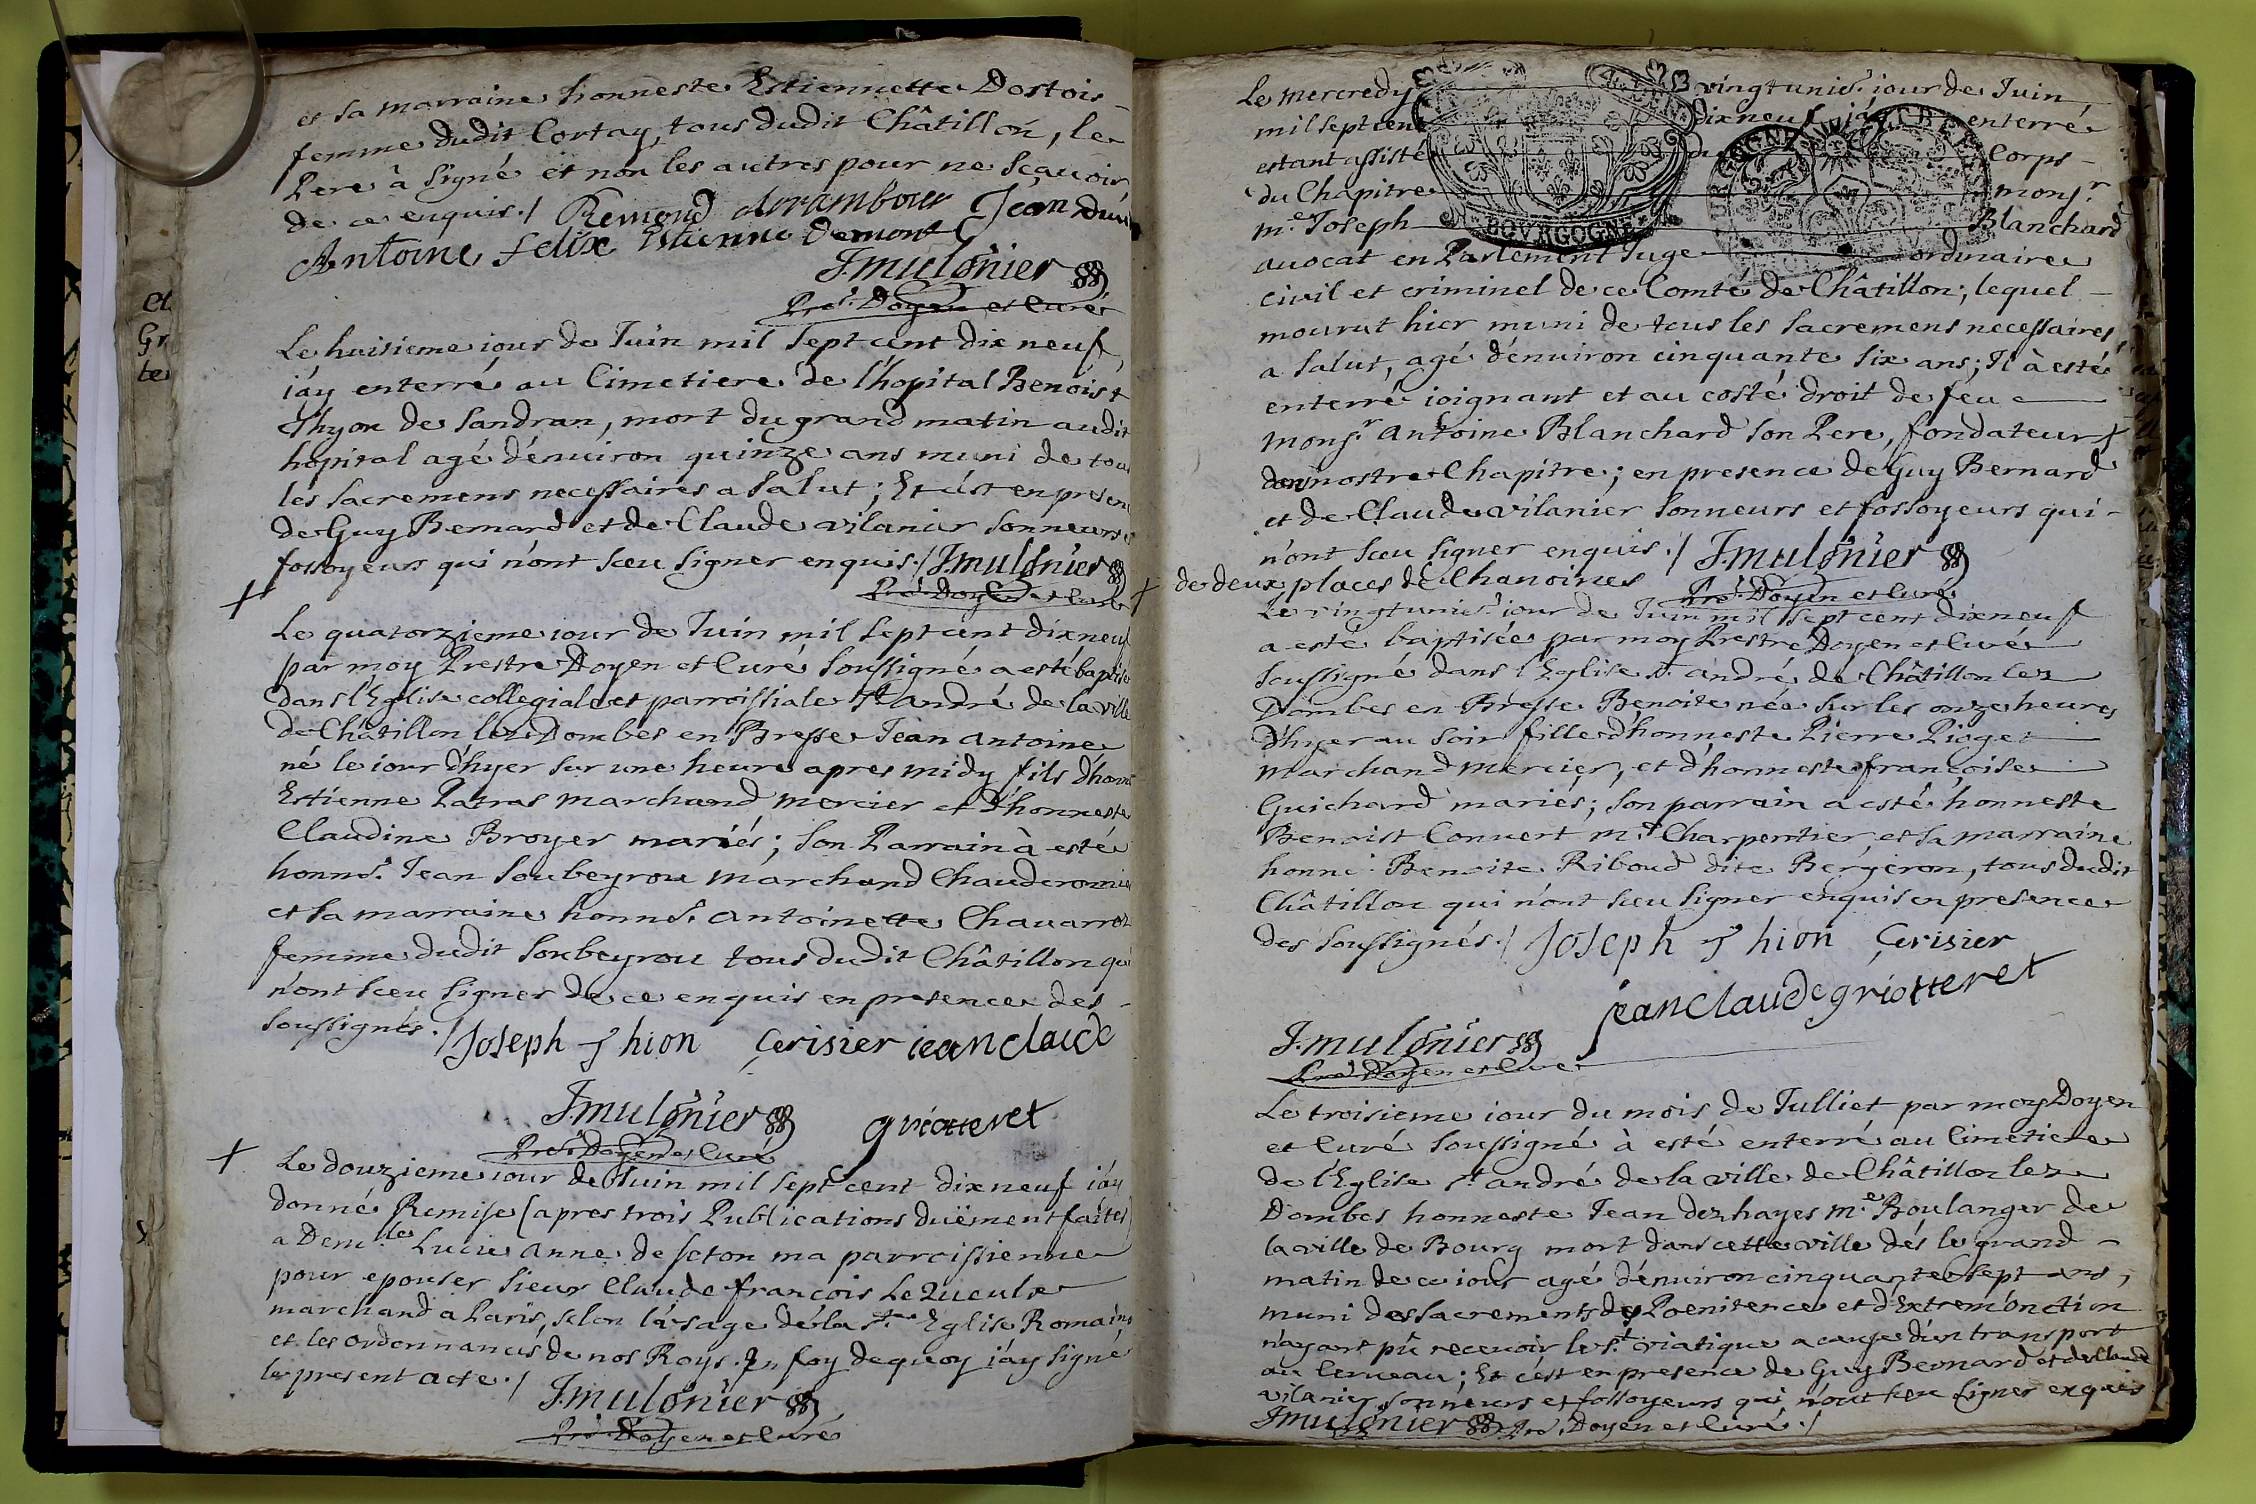 et sa marraine honneste Estiennette Dostois -
femme dudit Cortay, tous dudit Châtillon, le
Pere à signé et non les autres pour ne sçauoir
de ce enquis ./ Remond Jean
Antoine felix Estienne Demont
J. mulonier
Pre. Doyen et Curé
Le huisieme iour de Juin mil sept cent dix neuf
i'áy enterré au Cimetiere de l'hopital Benoist
thyon de sandran, mort du grand matin audit
hôpital agé d'énuiron quinze ans muni de tou
les sacremens necessaires a salut; Et c'ést en presen
de Guy Bernard et de Claude vilanier sonneurs
fossoyeurs qui n'ont sceu signer enquis ./ J. mulonier
Pre. Doyen et Curé
+
Le quatorzieme iour de Juin mil sept cent dix neuf
par moy Prestre Doyen et Curé soussigné a esté baptisé
dans l'Eglise collegiale et parroissiale St André de la ville
de Châtillon lez Dombes en Bresse Jean Antoine
né le iour d'hyer sur une heure apres midy fils d'honn
Estienne Patras marchand mercier et d'honneste
Claudine Broyer mariés; son Parrain à esté
honns. Jean Soubeyrou marchand Chauderonnie
et sa marraine honns. Antoinette Chauarrot
femme dudit Soubeyrou tous dudit Châtillon qui
n'ont sceu signer de ce enquis en presence des -
soussignés ./ Joseph Thion Cerisier iean claude
J. mulonier griotteret
Pre. Doyen et Curé
+
Le douzieme iour de Juin mil sept cent dix neuf i'áy
donné Remise (apres trois Publications duëment faites)
a Demlle Lucie Anne de seton ma parroissienne
pour epouser sieur Claude françois Le Queulx
marchand a Paris, selon l'úsage dé la ste Eglise Romaine
et les ordonnances de nos Roys. En foy dequoy i'áy signé
le present acte ./ J. mulonier
Pre. Doyen et Curé
Le Mercredy vingtunie. iour de Juin
mil sept cent dix neuf i'áy enterré
estant assisté du Corps -
du Chapitre monsr
me Joseph Blanchard
auocat en Parlement Juge ordinaire
ciuil et criminel de ce Comté de Châtillon; lequel -
mourut hier muni de tous les sacremens necessaires
a salut, agé d'énuiron cinquante six ans; Il à esté
enterré ioignant et au costé droit de feu
monsr Antoine Blanchard son Pere, fondateur +
dans nostre Chapitre; en presence de Guy Bernard
et de Claude vilanier sonneurs et fossoyeurs qui -
n'ont sceu signer enquis ./ J. mulonier
+ de deux places de Chanoines Pre. Doyen et Curé
Le vingtunie. iour de Juin mil sept cent dix neuf
a esté baptisée par moy Prestre Doyen et Curé
soussigné dans l'Eglise st André de Châtillon lez
Dombes en Bresse Benoite née sur les onze heures
d'hyer au soir fille d'honneste Pierre Pioget
marchand mercier, et d'honneste françoise
Guichard mariés; son parrain a esté honneste
Benoist Conuert md Charpentier et sa marraine
honne. Benoite Riboud dite Bergeron, tous dudit
Châtillon qui n'ont sceu signer enquis en presence
des soussignés ./ Joseph Thion Cerisier
jean claude griotteret
J. mulonier
Pre. Doyen et Curé
Le troisieme iour du mois de Julliet par moy Doyen
et Curé soussigné à esté enterré au Cimetiere
de l'Eglise st André de la ville de Châtillon lez
Dombes honneste Jean dezhayes me Boulanger de
la ville de Bourg mort dans cette ville dés le grand -
matin de ce iour agé d'énuiron cinquante sept ans,
muni des sacrements de Poenitence et d'Extrem'onction
n'ayant pû receuoir le st viatique a cause d'un transport
au cerueau; Et c'ést en presence de Guy Bernard et de Claude
vilanier sonneurs et fossoyeurs qui n'ont sceu signer enquis
J. mulonier Pre. Doyen et Curé ./
BOVRGOGNE